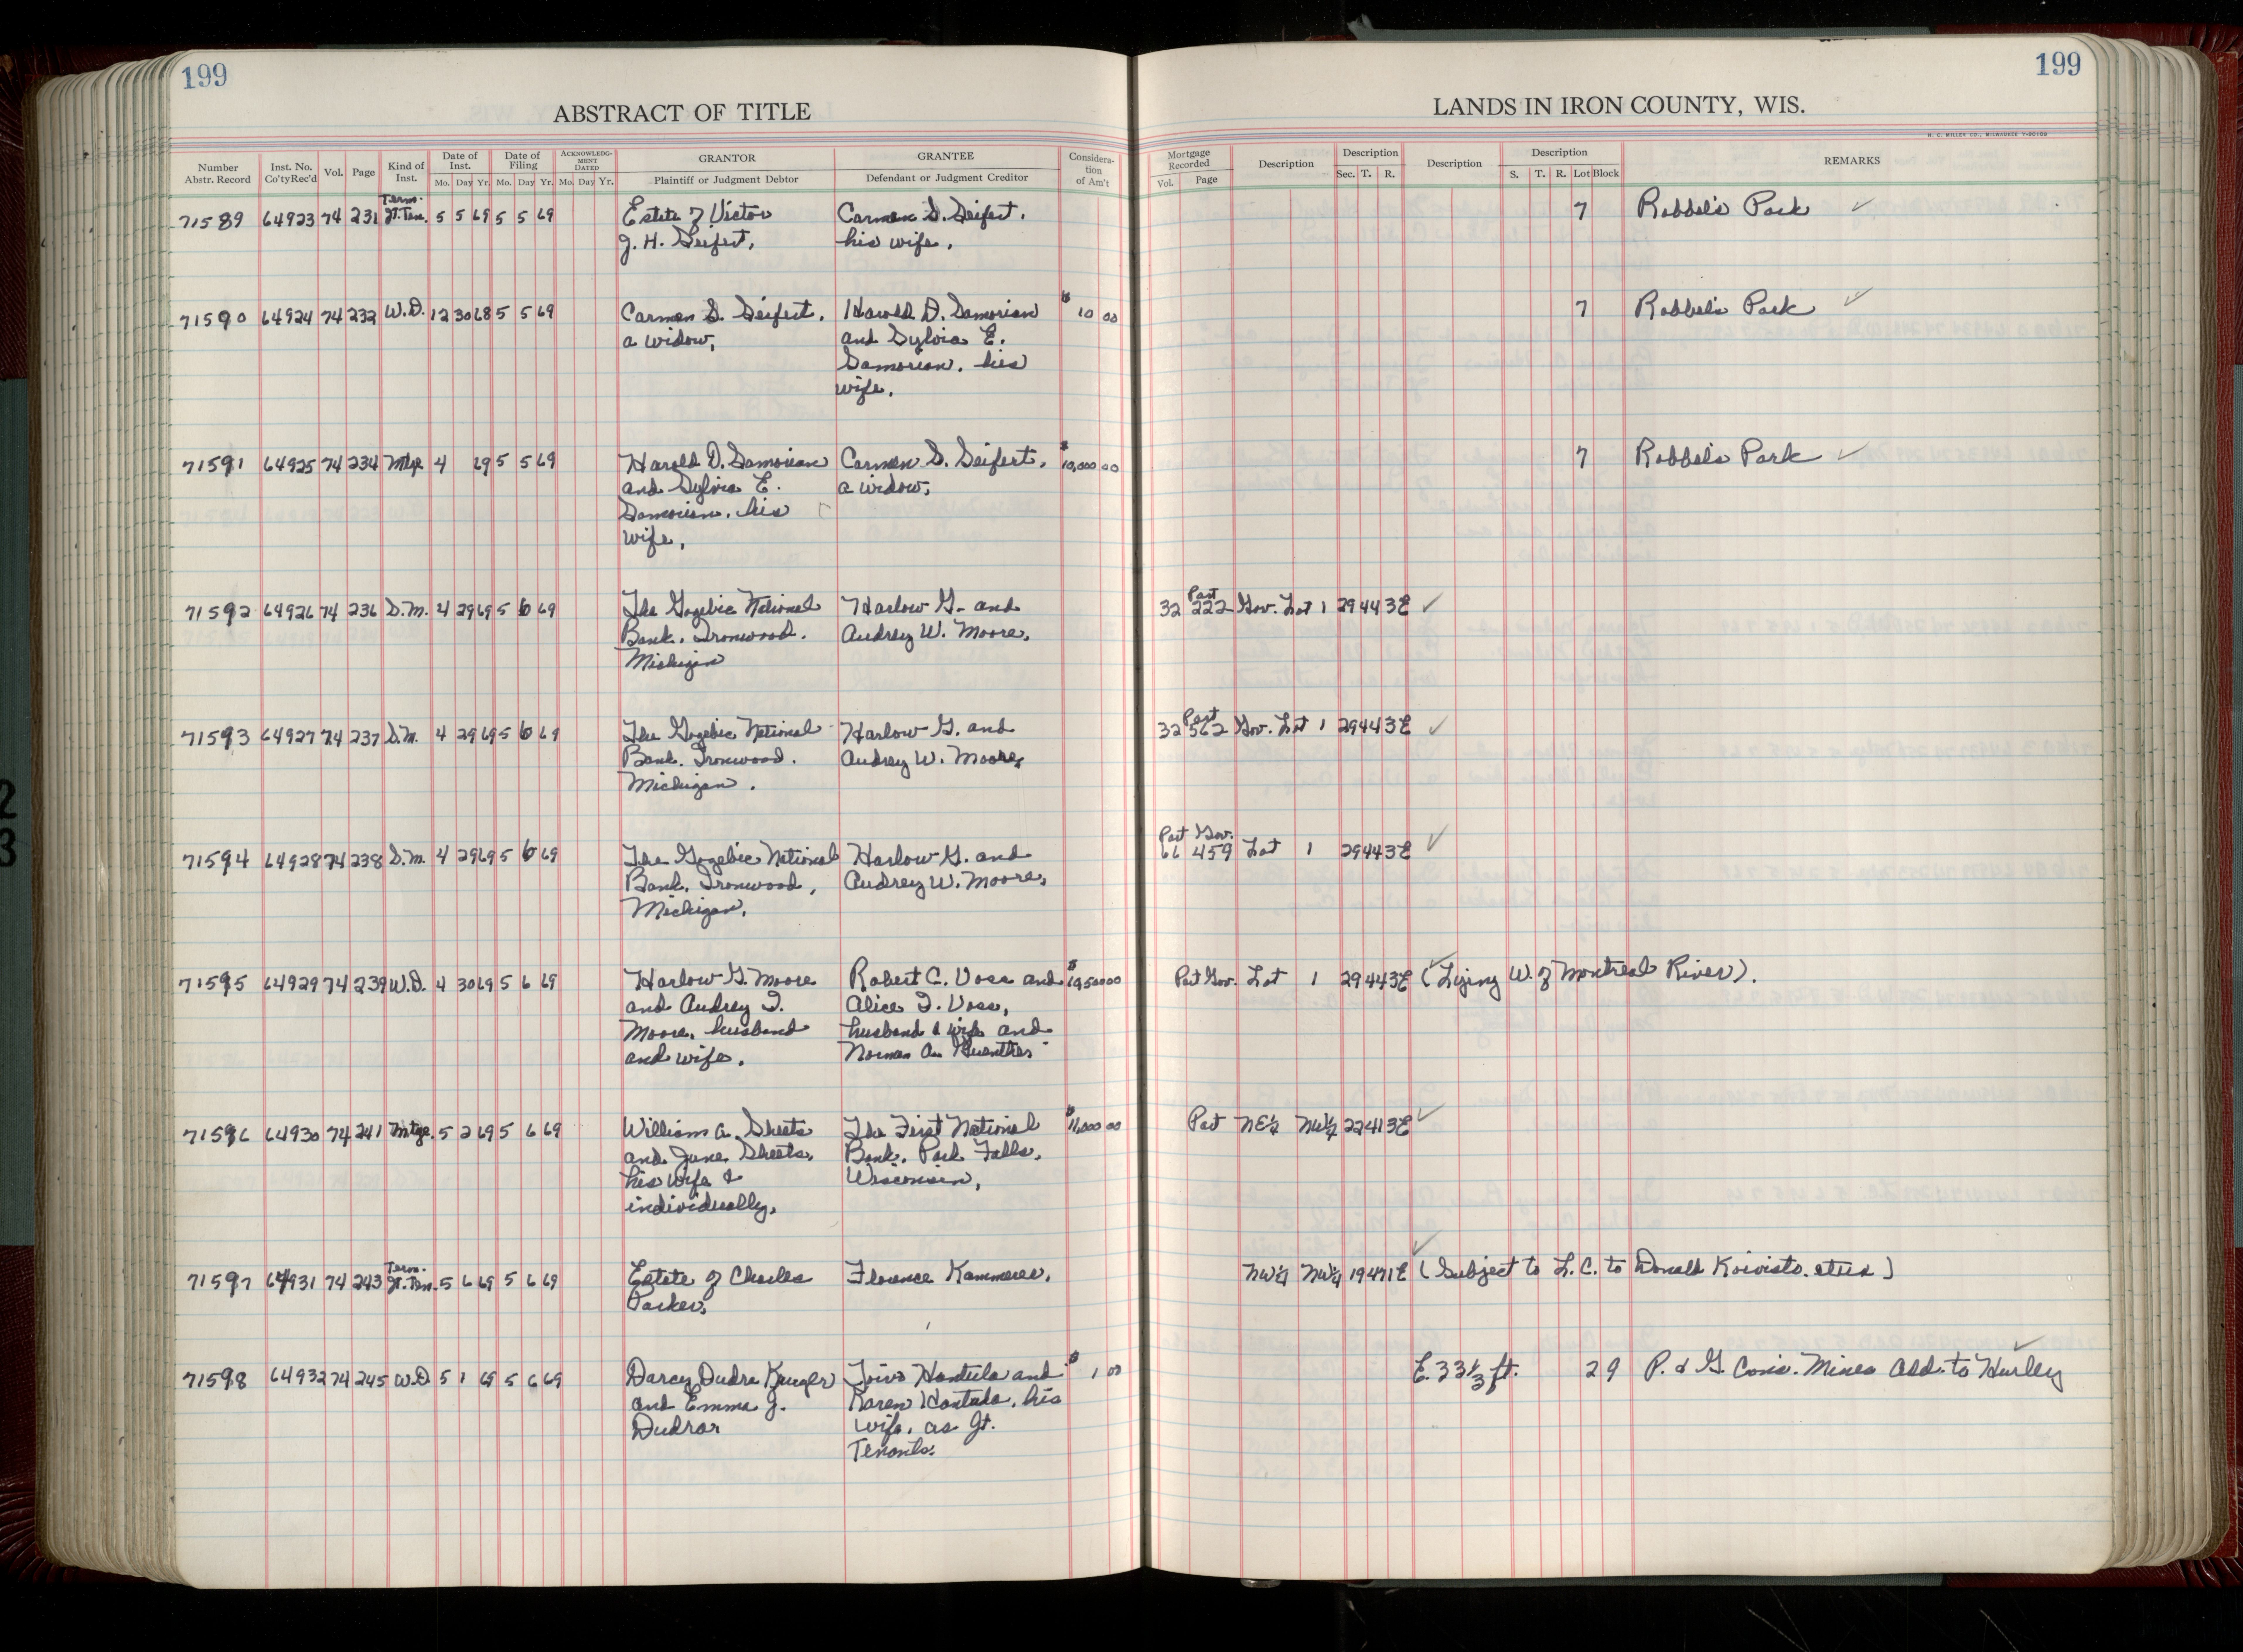 199
199
ABSTRACT OF TITLE
LANDS IN IRON COUNTY, WIS.
H. C. MILLER CO., MILWAUKEE
Number Abstr. Record | Inst. No. Co'ty Rec'd | Vol. | Page | Kind of Inst. | Date of Inst. Mo. Day Yr. | Date of Filing Mo. Day Yr. | ACKNOWLEDGMENT DATED Mo. Day Yr. | GRANTOR Plaintiff or Judgment Debtor | GRANTEE Defendant or Judgment Creditor | Consideration of Am't | Mortgage Recorded Vol. Page | Description | Description Sec. T. R. | Description | Description S. T. R. Lot Block | REMARKS
Term.
71589 64923 74 231 Jt. Ten. 5 5 69 5 5 69 Estate of Victor Carmen S. Seifert, 7 Robbel's Park ✓
J. H. Seifert, his wife,
71590 64924 74 232 W.D. 12 30 68 5 5 69 Carmen S. Seifert, Harold D. Samorian $10 00 7 Robbel's Park ✓
a widow, and Sylvia E.
Samorian, his
wife,
71591 64925 74 234 Mtge 4 69 5 5 69 Harold D. Samorian Carmen S. Seifert, $10,000 00 7 Robbel's Park ✓
and Sylvia E. a widow,
Samorian, his
wife,
Part
71592 64926 74 236 S.M. 4 29 69 5 6 69 The Gogebic National Harlow G. and 32 222 Gov. Lot 1 29 44 3E ✓
Bank, Ironwood, Audrey W. Moore,
Michigan
Part
71593 64927 74 237 S.M. 4 29 69 5 6 69 The Gogebic National Harlow G. and 32 562 Gov. Lot 1 29 44 3E ✓
Bank, Ironwood, Audrey W. Moore,
Michigan.
Part Gov.
71594 64928 74 238 S.M. 4 29 69 5 6 69 The Gogebic National Harlow G. and 66 459 Lot 1 29 44 3E ✓
Bank, Ironwood, Audrey W. Moore,
Michigan,
71595 64929 74 239 W.D. 4 30 69 5 6 69 Harlow G. Moore Robert C. Voss and Part Gov. Lot 1 29 44 3E ✓ (Lying W. of Montreal River).
and Audrey I. Alice I. Voss,
Moore, husband husband & wife and
and wife, Norman A. Guenther
71596 64930 74 241 Mtge. 5 2 69 5 6 69 William A. Sheets The First National $11,000 00 Part NE¼ NW¼ 22 41 3E ✓
and June Sheets, Bank, Park Falls,
his wife & Wisconsin,
individually,
Term.
71597 64931 74 243 Jt. Ten. 5 6 69 5 6 69 Estate of Charles Florence Kammerer, NW¼ NW¼ 19 47 1E ✓ (Subject to L.C. to Donald Koivisto, etux)
Parker,
71598 64932 74 245 W.D 5 1 69 5 6 69 Darcy Dudra Kruger Toivo Hantula and $1 00 E. 33⅓ ft. 29 P. & G. Cons. Mines Add. to Hurley ✓
and Emma J. Karen Hantula, his
Dudrar wife, as Jt.
Tenants.